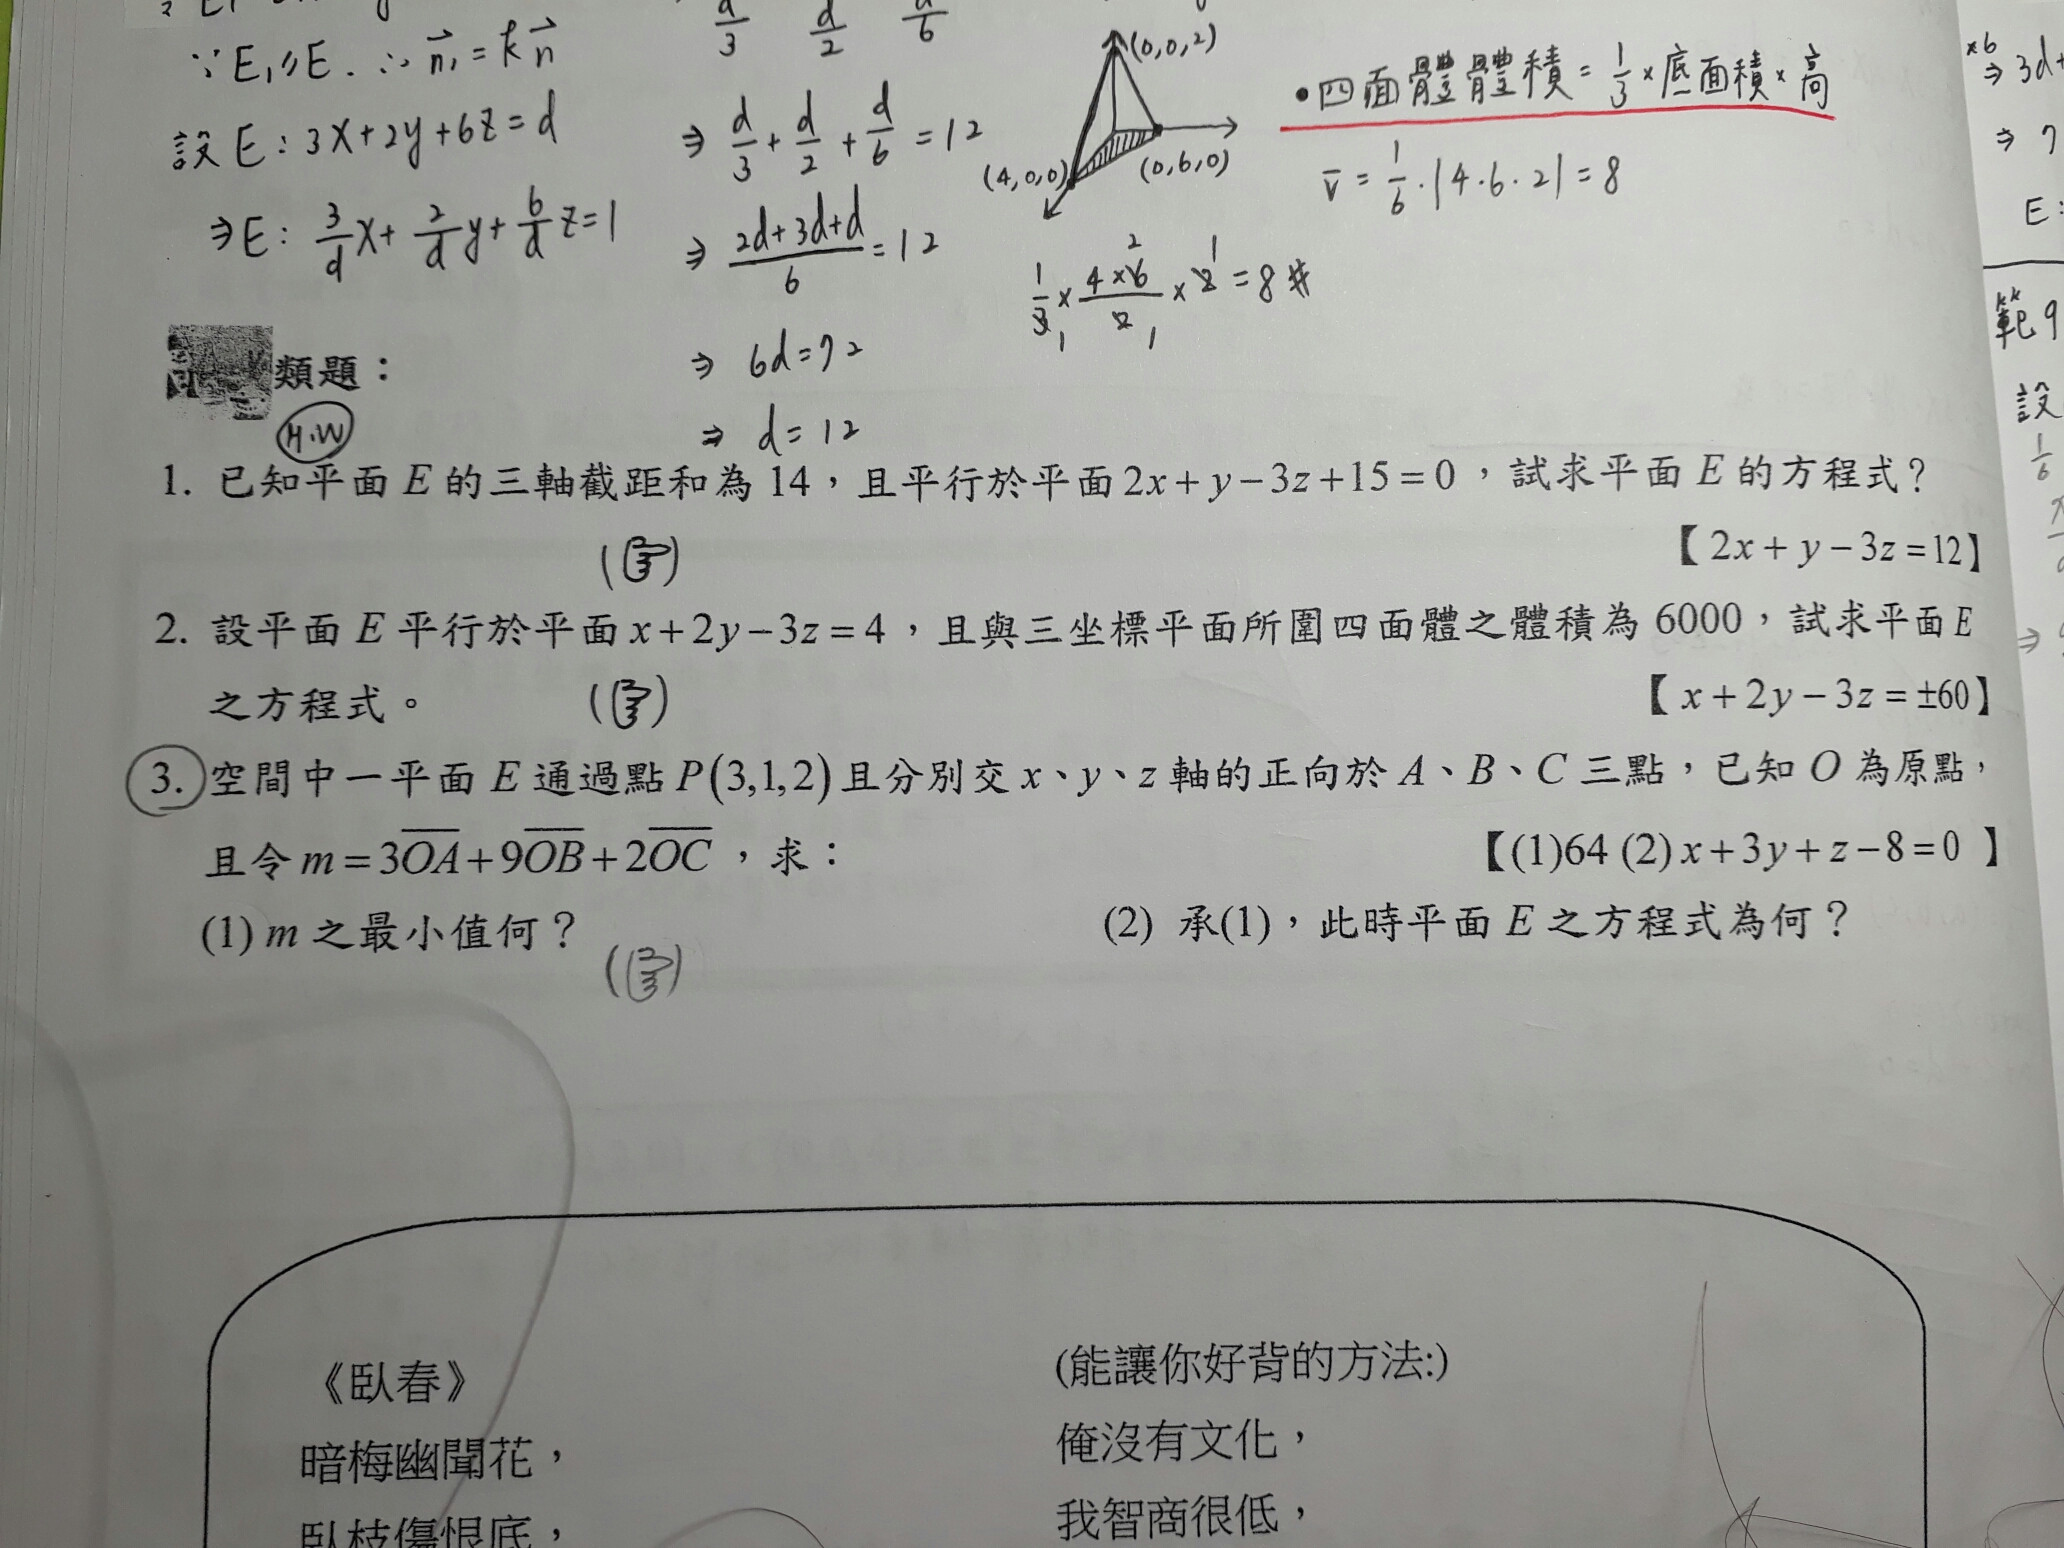 ∵ E₁//E. ∴ n⃗₁ = k n⃗
設 E: 3x+2y+6z=d
⇒ E: 3/d x + 2/d y + 6/d z = 1
d/3 d/2 d/6
⇒ d/3 + d/2 + d/6 = 12
⇒ (2d+3d+d)/6 = 12
⇒ 6d=72
⇒ d=12
(0,0,2)
(4,0,0)
(0,6,0)
1/3 × (4×6)/2 × 2 = 8 #
2 1
1 1
•四面體體積 = 1/3 × 底面積 × 高
V = 1/6 · |4·6·2| = 8
×6
⇒ 3d+
⇒ 7
E:
範9
設
1/6
類題：
H.W
1. 已知平面 E 的三軸截距和為 14，且平行於平面 2x+y−3z+15=0，試求平面 E 的方程式？
【2x+y−3z=12】
2. 設平面 E 平行於平面 x+2y−3z=4，且與三坐標平面所圍四面體之體積為 6000，試求平面 E
之方程式。
【x+2y−3z=±60】
3. 空間中一平面 E 通過點 P(3,1,2) 且分別交 x、y、z 軸的正向於 A、B、C 三點，已知 O 為原點，
且令 m=3OA+9OB+2OC，求：
【(1)64 (2) x+3y+z−8=0 】
(1) m 之最小值何？ (2) 承(1)，此時平面 E 之方程式為何？
《臥春》
暗梅幽聞花，
臥枝傷恨底，
(能讓你好背的方法:)
俺沒有文化，
我智商很低，